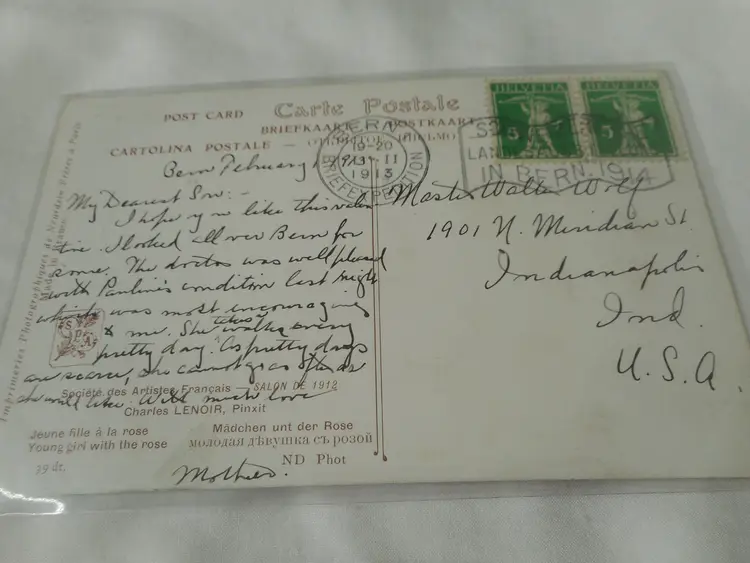 POST CARD Carte Postale
BRIEFKAART POSTKAART
CARTOLINA POSTALE — ОТКРЫТОЕ ПИСЬМО
HELVETIA HELVETIA
5 5
BERN
19-20
II
1913
BRIEFEXPEDITION
IN BERN. 1914
Bern February 1 1913
My Dearest Son:-
I hope you like this valen
tine. I looked all over Bern for
some. The doctor was well pleased
with Pauline's condition last night
which was most encouraging
to me. She takes walks every
pretty day. As pretty days
are scarce, she cannot go as often as
she would like. With much love
Mother.
Master Walter Wolf
1901 N. Meridian St.
Indianapolis
Ind.
U.S.A.
Imprimeries Photographiques de Neurdein Frères à Paris
Made in France
SPA
Société des Artistes Français — SALON DE 1912
Charles LENOIR, Pinxit
Jeune fille à la rose Mädchen unt der Rose
Young girl with the rose молодая дѣвушка съ розой
39 dt. ND Phot